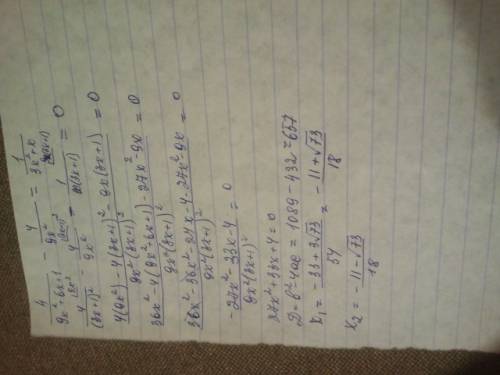 4/(9x²+6x+1) - 4/(9x²) = 1/(3x²+x)
4/(3x+1)² - 4/(9x²) - 1/(x(3x+1)) = 0
(4(9x²) - 4(3x+1)² - 9x(3x+1))/(9x²(3x+1)²) = 0
(36x² - 4(9x²+6x+1) - 27x² - 9x)/(9x²(3x+1)²) = 0
(36x² - 36x² - 24x - 4 - 27x² - 9x)/(9x²(3x+1)²) = 0
(-27x² - 33x - 4)/(9x²(3x+1)²) = 0
27x² + 33x + 4 = 0
D = b² - 4ac = 1089 - 432 = 657
x₁ = (-33 + 3√73)/54 = (-11 + √73)/18
x₂ = (-11 - √73)/18